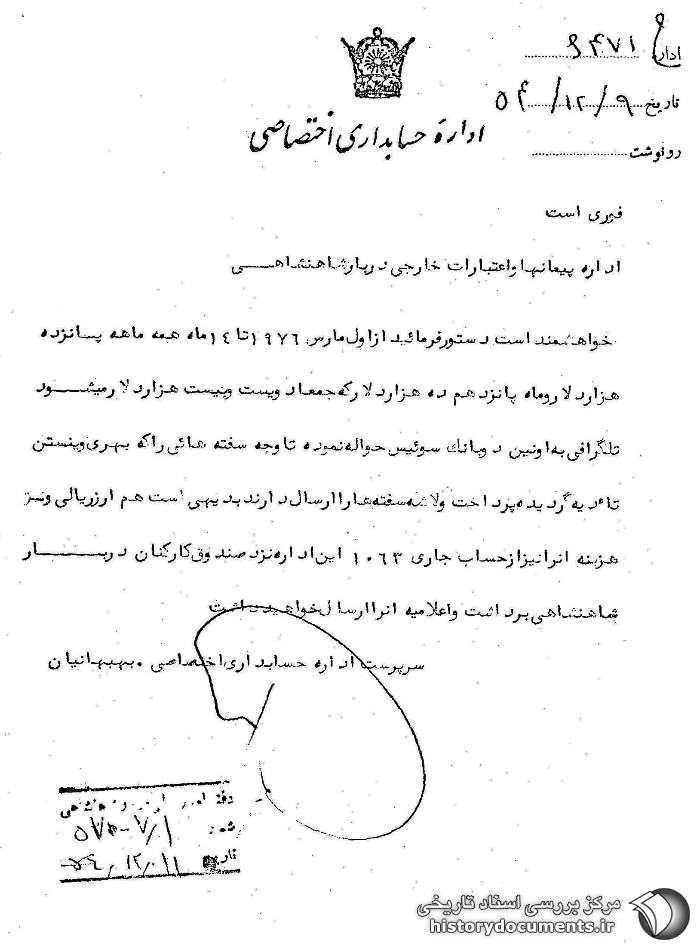 اداره ۶۴۷۱
تاریخ ۵۴/۱۲/۹
رونوشت
اداره حسابداری اختصاصی
فوری است
اداره پیمانها و اعتبارات خارجی دربار شاهنشاهی
خواهشمند است دستور فرمائید از اول مارس ۱۹۷۶ تا ۱۴ ماه همه ماهه پسانزده
هزار دلار و ماه پانزدهم ده هزار دلار که جمعا دویست و بیست هزار دلار میشود
تلگرافی به اونین دو بانك سوئیس حواله نموده تا وجه سفته هائی را که بهری وینستن
تادیه گردیده پرداخت و لاشه سفته ها را ارسال دارند بدیهی است هم ارز ریالی و نیز
هزینه انرا نیز از حساب جاری ۱۰۶۳ این اداره نزد صندوق کارکنان دربار
شاهنشاهی برداشت و اعلامیه انرا ارسال خواهید داشت
سرپرست اداره حسابداری اختصاصی . بهبهانیان
دفتر
شماره
تاریخ ۵۴,۱۲,۱۱
مرکز بررسی اسناد تاریخی
historydocuments.ir